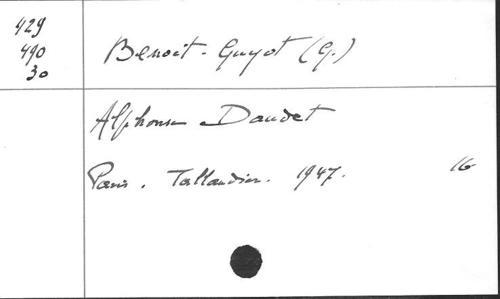 429
490
30
Benoit-Guyot (G.)
Alphonse Daudet
Paris. Tallandier. 1947. 16